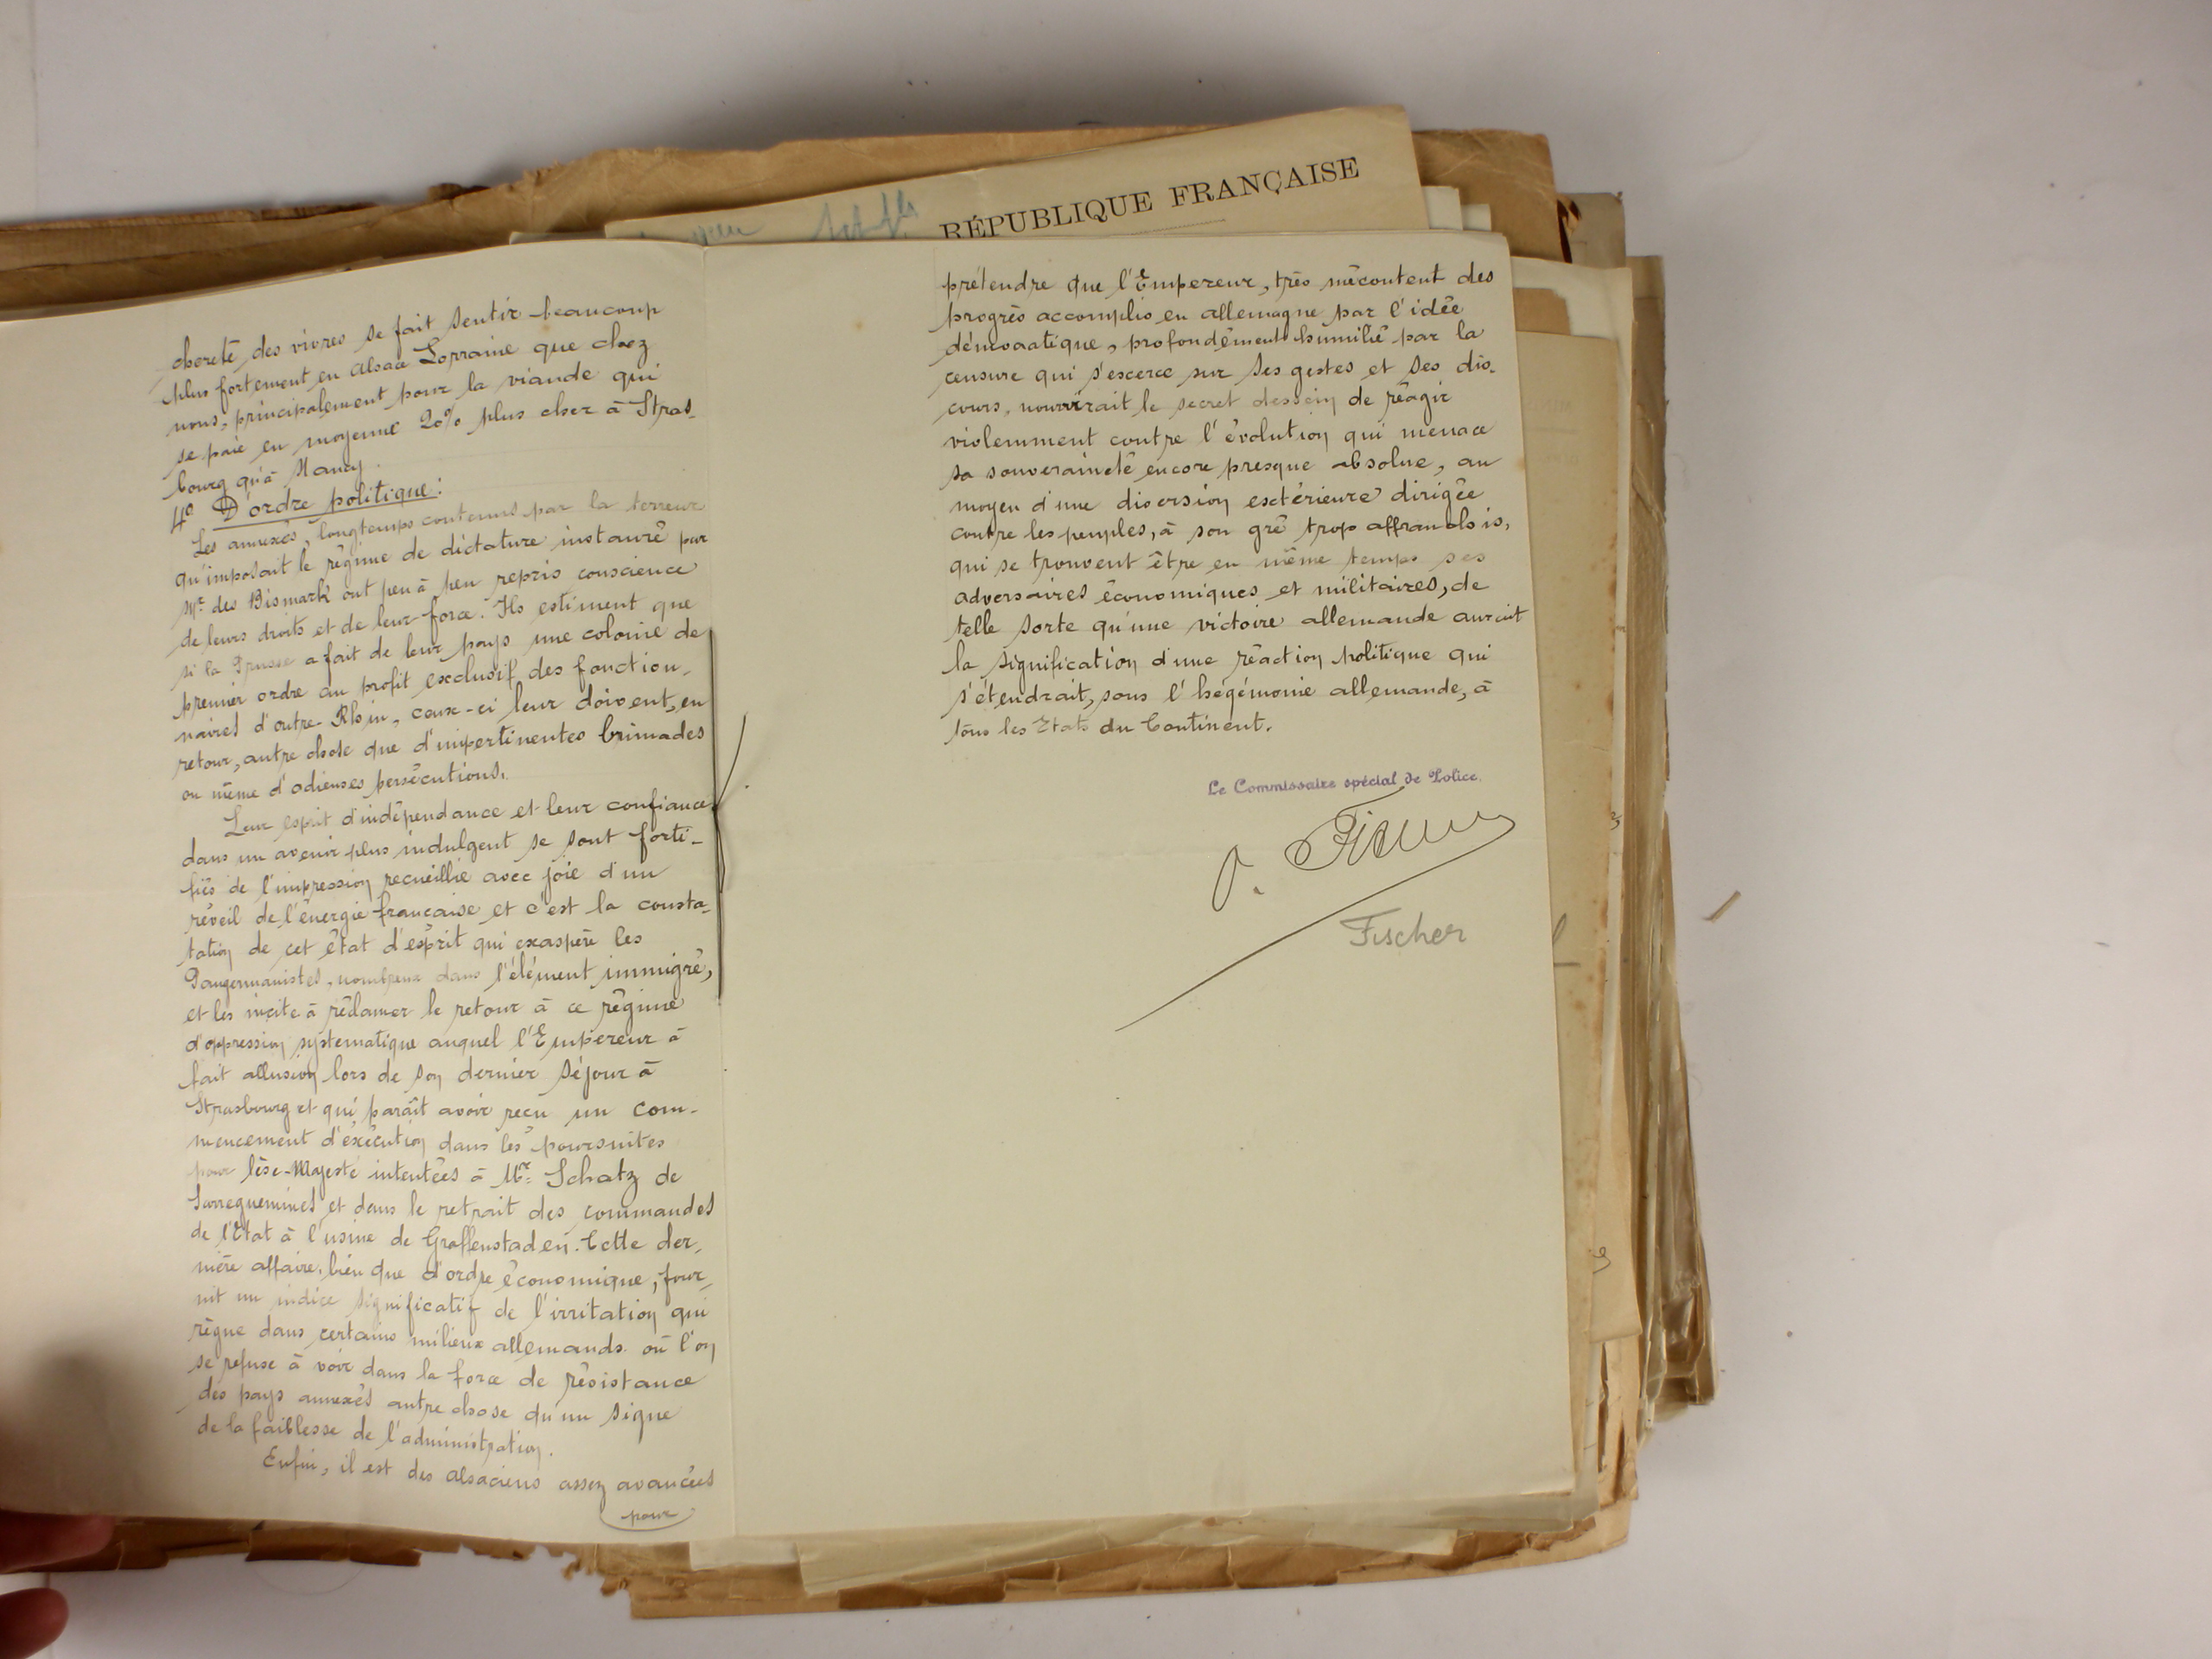 RÉPUBLIQUE FRANÇAISE
cherté des vivres se fait sentir beaucoup
plus fortement en Alsace Lorraine que chez
nous, principalement pour la viande qui
se paie en moyenne 20% plus cher à Stras-
bourg qu'à Nancy.
4° D'ordre politique:
Les annexés, longtemps contenus par la terreur
qu'imposait le régime de dictature instauré par
Mr. des Bismark ont peu à peu repris conscience
de leurs droits et de leur force. Ils estiment que
si la Prusse a fait de leur pays une colonie de
premier ordre au profit exclusif des fonction-
naires d'outre-Rhin, ceux-ci leur doivent, en
retour, autre chose que d'impertinentes brimades
ou même d'odieuses persécutions.
Leur esprit d'indépendance et leur confiance
dans un avenir plus indulgent se sont forti-
fiés de l'impression recueillie avec joie d'un
réveil de l'énergie française et c'est la consta-
tation de cet état d'esprit qui exaspère les
Pangermanistes, nombreux dans l'élément immigré,
et les incite à réclamer le retour à ce régime
d'oppression systématique auquel l'Empereur à
fait allusion lors de son dernier séjour à
Strasbourg et qui paraît avoir reçu un com-
mencement d'éxécution dans les poursuites
pour lèse-Majesté intentées à Mr. Schatz de
Sarreguemines et dans le retrait des commandes
de l'Etat à l'usine de Graffenstaden. Cette der-
nière affaire, bien que d'ordre économique, four-
nit un indice significatif de l'irritation qui
règne dans certains milieux allemands où l'on
se refuse à voir dans la force de résistance
des pays annexés autre chose qu'un signe
de la faiblesse de l'administration.
Enfin, il est des alsaciens assez avancées
pour
prétendre que l'Empereur, très mécontent des
progrès accomplis en allemagne par l'idée
démocratique, profondément humilié par la
censure qui s'exerce sur ses gestes et ses dis-
cours, nourrirait le secret dessein de réagir
violemment contre l'évolution qui menace
sa souveraineté encore presque absolue, au
moyen d'une diversion extérieure dirigée
contre les peuples, à son gré trop affranchis,
qui se trouvent être en même temps ses
adversaires économiques et militaires, de
telle sorte qu'une victoire allemande aurait
la signification d'une réaction politique qui
s'étendrait, sous l'hégémonie allemande, à
tous les Etats du Continent.
Le Commissaire spécial de Police,
Fischer